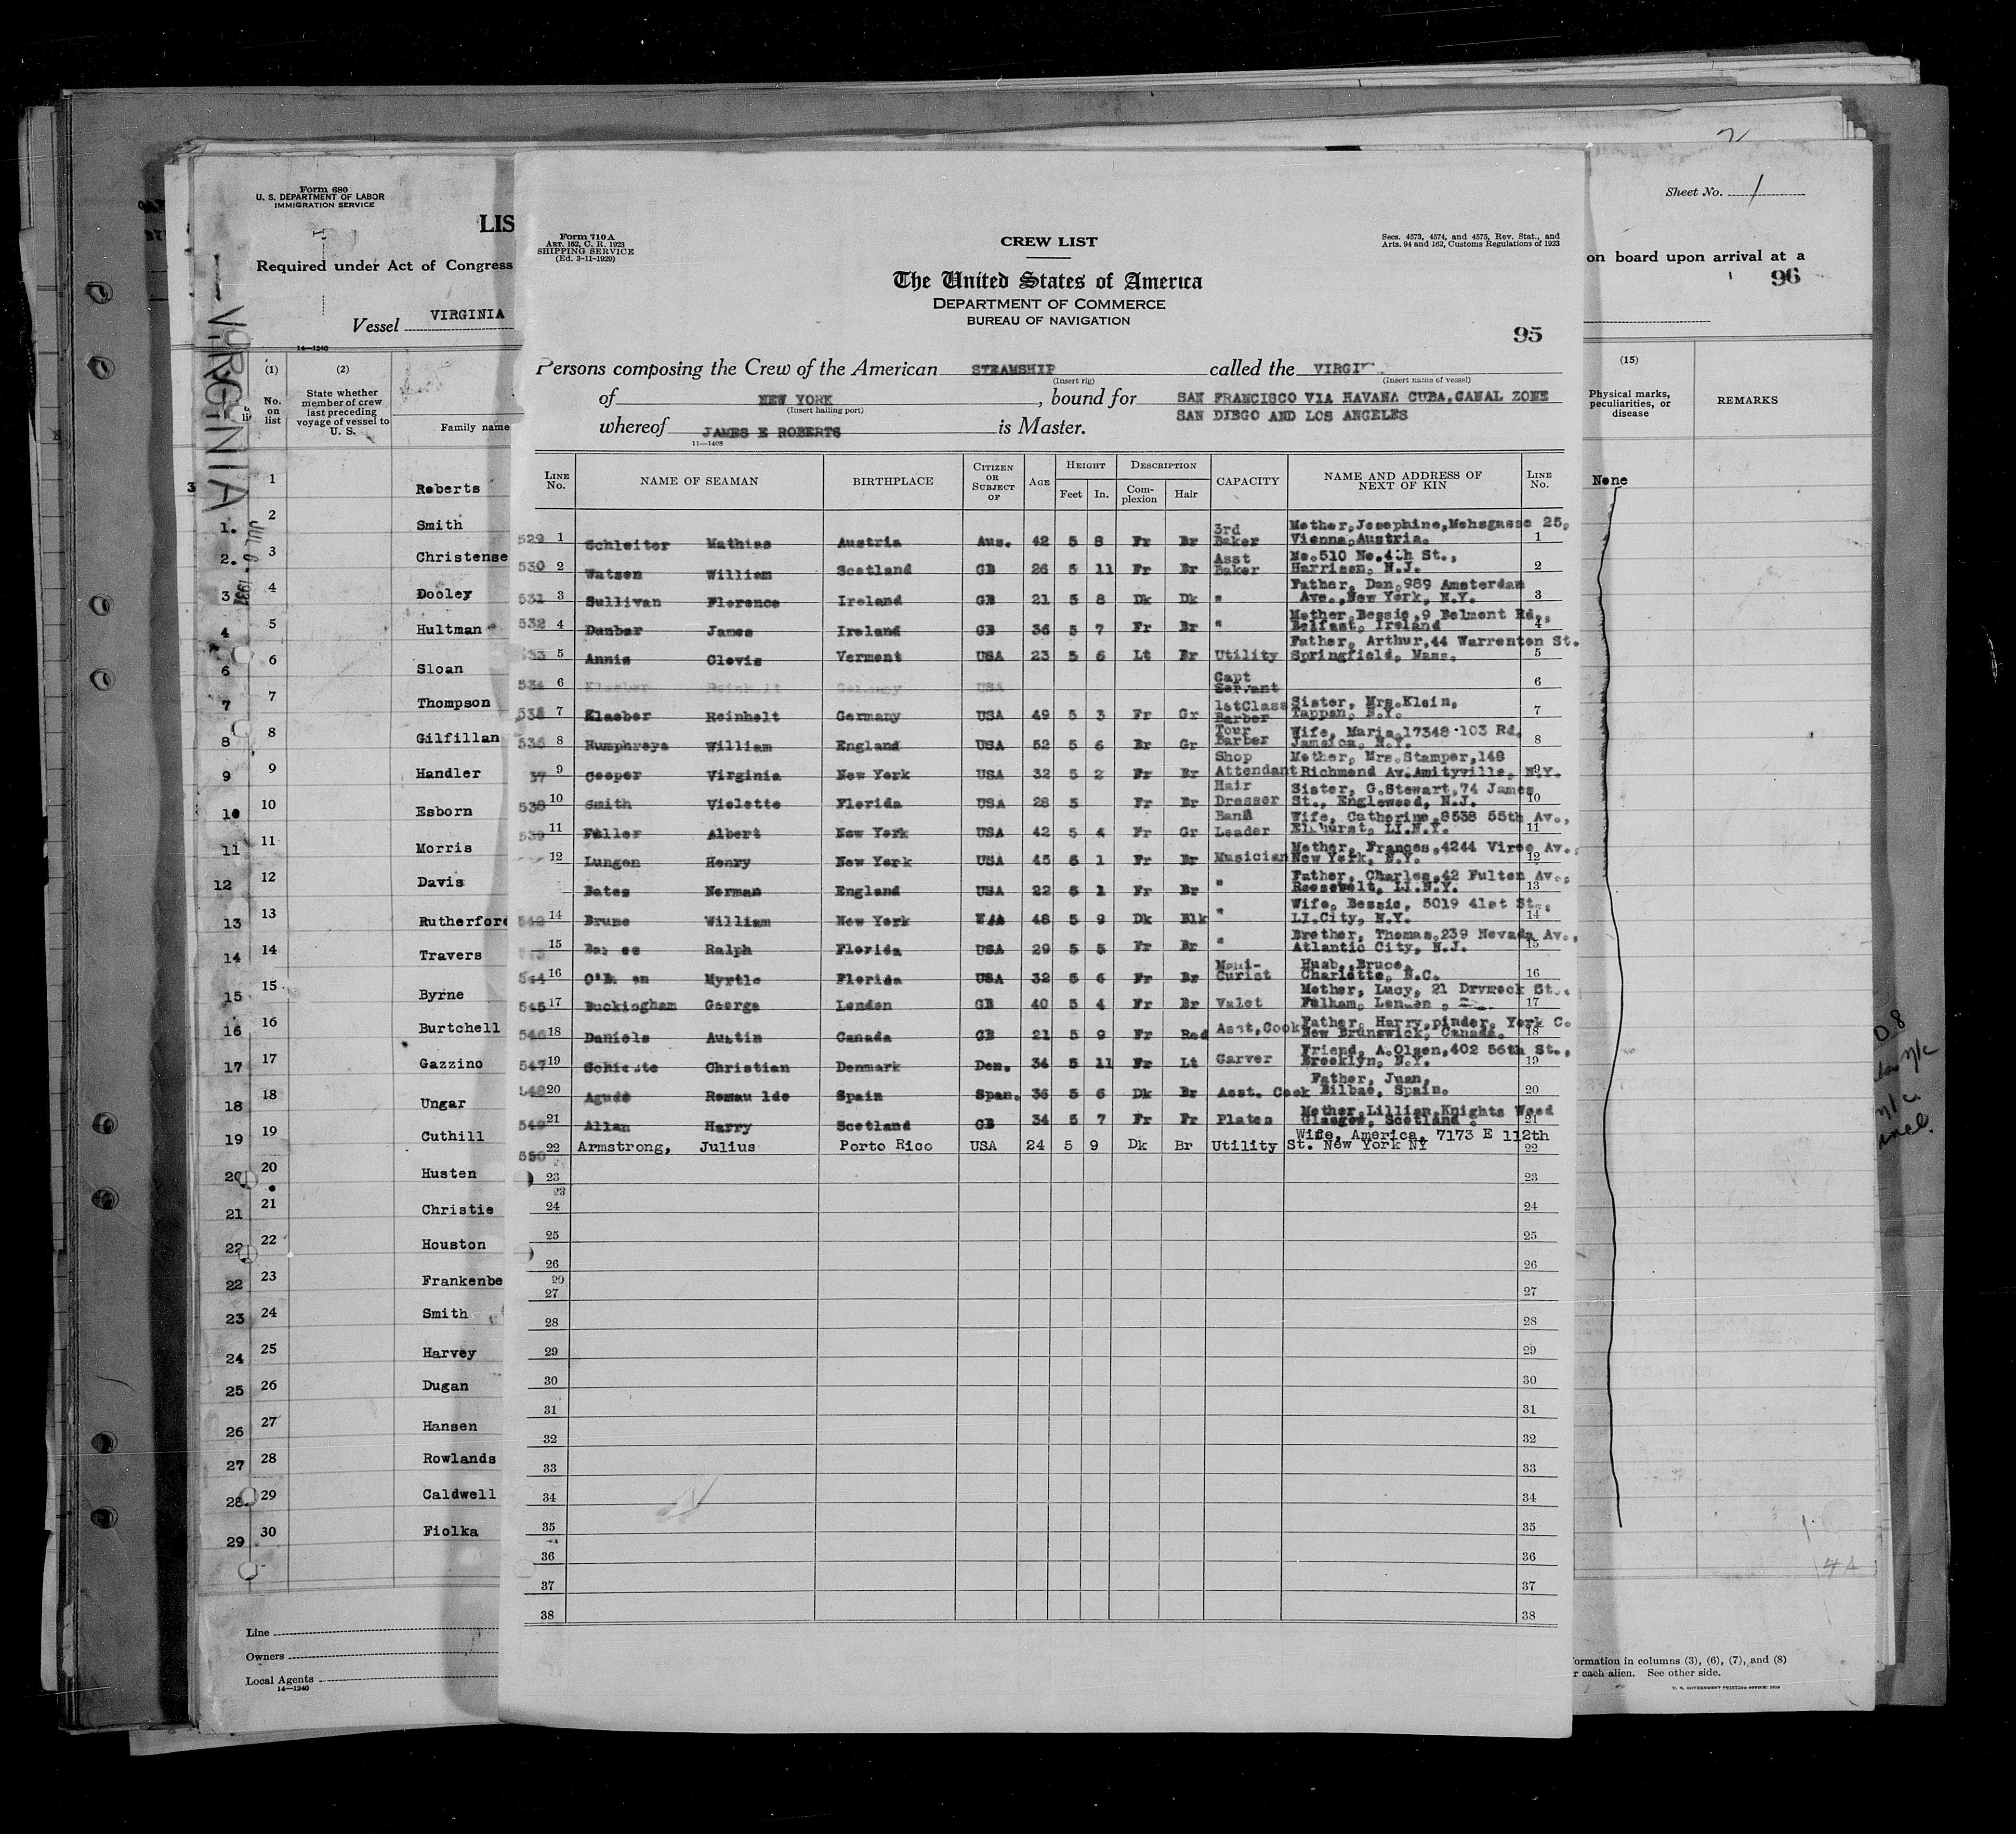 2
Form 680
U. S. DEPARTMENT OF LABOR
IMMIGRATION SERVICE
LIS
Required under Act of Congress
Vessel VIRGINIA
14—1240
VIRGINIA
JUL 6 - 1931
(1) (2)
No. on list
State whether member of crew last preceding voyage of vessel to U. S.
Family name
3 1 Roberts
1. 2 Smith
2. 3 Christense
3 4 Dooley
4 5 Hultman
6 6 Sloan
7 7 Thompson
8 8 Gilfillan
9 9 Handler
10 10 Esborn
11 11 Morris
12 12 Davis
13 13 Rutherford
14 14 Travers
15 15 Byrne
16 16 Burtchell
17 17 Gazzino
18 18 Ungar
19 19 Cuthill
20 20 Husten
21 21 Christie
22 22 Houston
22 23 Frankenbe
23 24 Smith
24 25 Harvey
25 26 Dugan
26 27 Hansen
27 28 Rowlands
28 29 Caldwell
29 30 Fiolka
Line
Owners
Local Agents
14—1240
Form 710 A
ART. 162, C. R. 1923
SHIPPING SERVICE
(Ed. 3-11-1929)
CREW LIST
Secs. 4573, 4574, and 4575, Rev. Stat., and
Arts. 94 and 162, Customs Regulations of 1923
The United States of America
DEPARTMENT OF COMMERCE
BUREAU OF NAVIGATION
95
Persons composing the Crew of the American STEAMSHIP called the VIRGI
(Insert rig) (Insert name of vessel)
of NEW YORK, bound for SAN FRANCISCO VIA HAVANA CUBA, CANAL ZONE
(Insert hailing port)
SAN DIEGO AND LOS ANGELES
whereof JAMES E ROBERTS is Master.
11—1408
LINE No. NAME OF SEAMAN BIRTHPLACE CITIZEN OR SUBJECT OF AGE HEIGHT DESCRIPTION CAPACITY NAME AND ADDRESS OF NEXT OF KIN LINE No.
Feet In. Complexion Hair
529 1 Schleiter Mathias Austria Aus. 42 5 8 Fr Br 3rd Baker Mother, Josephine, Mohsgasse 25, Vienna, Austria. 1
530 2 Watson William Scotland GB 26 5 11 Fr Br Asst Baker Mc. 510 No. 4th St., Harrison, N.J. 2
531 3 Sullivan Florence Ireland GB 21 5 8 Dk Dk " Father, Dan, 989 Amsterdam Ave., New York, N.Y. 3
532 4 Dunbar James Ireland GB 36 5 7 Fr Br " Mother, Bessie, 9 Belmont Rd., Belfast, Ireland 4
533 5 Annis Clovis Vermont USA 23 5 6 Lt Br Utility Father, Arthur, 44 Warrenton St. Springfield, Mass. 5
534 6 Klaeber Reinholt Germany USA Capt Servant 6
535 7 Klaeber Reinholt Germany USA 49 5 3 Fr Gr 1st Class Barber Sister, Mrs. Klein, Tappan, N.Y. 7
536 8 Humphreys William England USA 52 5 6 Br Gr Tour Barber Wife, Maria, 17348-103 Rd. Jamaica, N.Y. 8
37 9 Cooper Virginia New York USA 32 5 2 Fr Br Shop Attendant Mother, Mrs. Stamper, 148 Richmond Av. Amityville, N.Y. 9
538 10 Smith Violette Florida USA 28 5 Fr Br Hair Dresser Sister, G. Stewart, 74 James St., Englewood, N.J. 10
539 11 Feller Albert New York USA 42 5 4 Fr Gr Band Leader Wife, Catherine, 8538 55th Av., Elmhurst, LI.N.Y. 11
12 Lungen Henry New York USA 45 5 1 Fr Br Musician Mother, Frances, 4244 Av., New York, N.Y. 12
Bates Norman England USA 22 5 1 Fr Br " Father, Charles, 42 Fulton Av., Roosevelt, LI.N.Y. 13
542 14 Brune William New York USA 48 5 9 Dk Blk " Wife, Bessie, 5019 41st St., LI.City, N.Y. 14
15 Ralph Florida USA 29 5 5 Fr Br " Brother, Thomas, 239 Nevada Av., Atlantic City, N.J. 15
544 16 Myrtle Florida USA 32 5 6 Fr Br Mani-Curist Husb., Bruce, Charlotte, N.C. 16
545 17 Buckingham George London GB 40 5 4 Fr Br Valet Mother, Lucy, 21 Drymock St., Fulham, London, 17
546 18 Daniels Austin Canada GB 21 5 9 Fr Red Asst, Cook Father, Harry, pinder, York C. New Brunswick, Canada. 18
547 19 Christian Denmark Den. 34 5 11 Fr Lt Carver Friend, A. Olsen, 402 56th St., Brooklyn, N.Y. 19
548 20 Agude Romau ldo Spain Span. 36 5 6 Dk Br Asst. Cook Father, Juan, Bilbao, Spain. 20
549 21 Allan Harry Scotland GB 34 5 7 Fr Fr Plates Mother, Lillian, Knights Wood Glasgow, Scotland. 21
550 22 Armstrong, Julius Porto Rico USA 24 5 9 Dk Br Utility Wife, America, 7173 E 112th St. New York NY 22
23 23
24 24
25 25
26 26
27 27
28 28
29 29
30 30
31 31
32 32
33 33
34 34
35 35
36 36
37 37
38 38
Sheet No. 1
on board upon arrival at a
96
(15)
Physical marks, peculiarities, or disease
REMARKS
None
4A
formation in columns (3), (6), (7), and (8)
r each alien. See other side.
U. S. GOVERNMENT PRINTING OFFICE